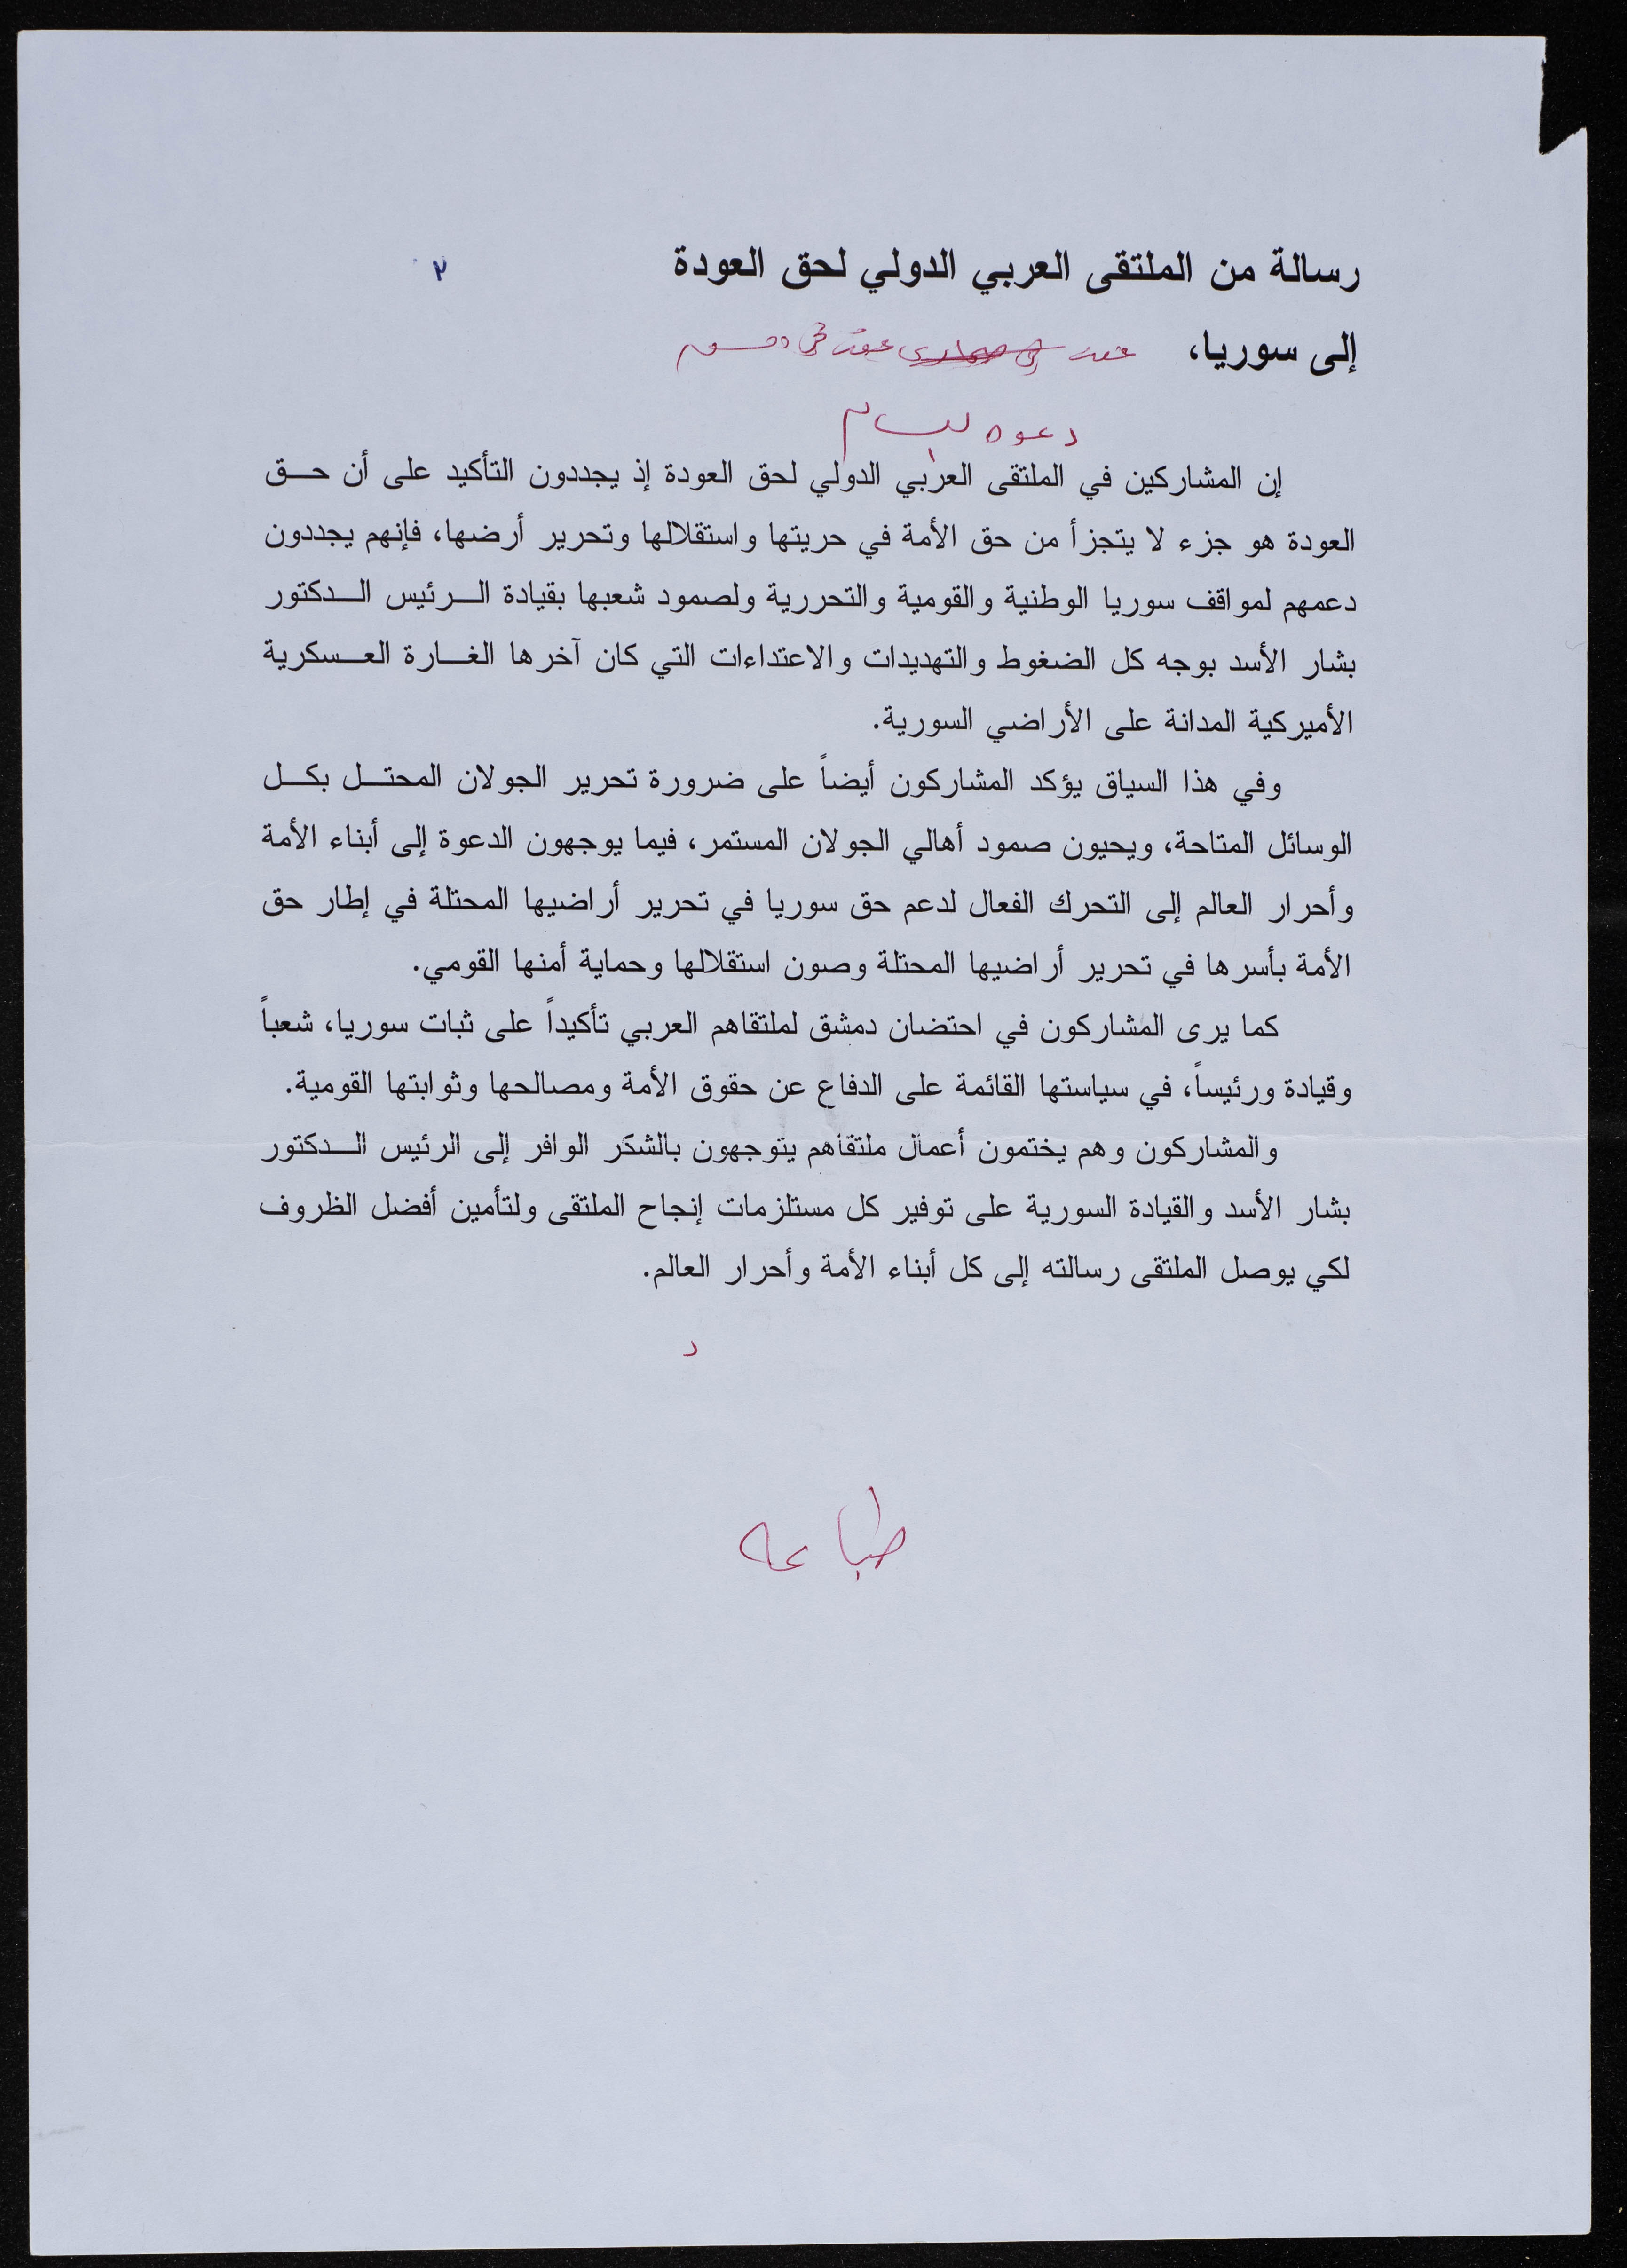 رسالة من الملتقى العربي الدولي لحق العودة ٢
إلى سوريا،
دعوه
إن المشاركين في الملتقى العربي الدولي لحق العودة إذ يجددون التأكيد على أن حــق
العودة هو جزء لا يتجزأ من حق الأمة في حريتها واستقلالها وتحرير أرضها، فإنهم يجددون
دعمهم لمواقف سوريا الوطنية والقومية والتحررية ولصمود شعبها بقيادة الــرئيس الــدكتور
بشار الأسد بوجه كل الضغوط والتهديدات والاعتداءات التي كان آخرها الغــارة العــسكرية
الأميركية المدانة على الأراضي السورية.
وفي هذا السياق يؤكد المشاركون أيضاً على ضرورة تحرير الجولان المحتــل بكــل
الوسائل المتاحة، ويحيون صمود أهالي الجولان المستمر، فيما يوجهون الدعوة إلى أبناء الأمة
وأحرار العالم إلى التحرك الفعال لدعم حق سوريا في تحرير أراضيها المحتلة في إطار حق
الأمة بأسرها في تحرير أراضيها المحتلة وصون استقلالها وحماية أمنها القومي.
كما يرى المشاركون في احتضان دمشق لملتقاهم العربي تأكيداً على ثبات سوريا، شعباً
وقيادة ورئيساً، في سياستها القائمة على الدفاع عن حقوق الأمة ومصالحها وثوابتها القومية.
والمشاركون وهم يختمون أعمال ملتقاهم يتوجهون بالشكر الوافر إلى الرئيس الــدكتور
بشار الأسد والقيادة السورية على توفير كل مستلزمات إنجاح الملتقى ولتأمين أفضل الظروف
لكي يوصل الملتقى رسالته إلى كل أبناء الأمة وأحرار العالم.
د
طباعه